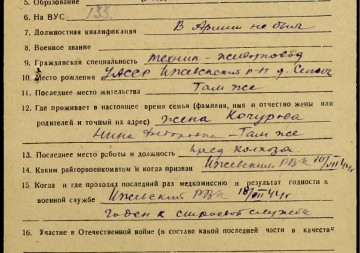 5. Образование
6. На ВУС 133.
7. Должностная квалификация В Армии не был
8. Военное звание
9. Гражданская специальность техник-животновод
10. Место рождения УАССР Ижевский р-н д.
11. Последнее место жительства Там же
12. Где проживает в настоящее время семья (фамилия, имя и отчество жены или
родителей и точный их адрес) жена Кочурова
Нина - Там же
13. Последнее место работы и должность пред колхоза
14. Каким райгорвоенкоматом и когда призван Ижевским РВК 10/VII 44 г
15. Когда и где проходил последний раз медкомиссию и результат годности к
военной службе Ижевский РВК 10/VII 44 г.
годен к строевой службе
16. Участие в Отечественной войне (в составе какой последней части в качестве